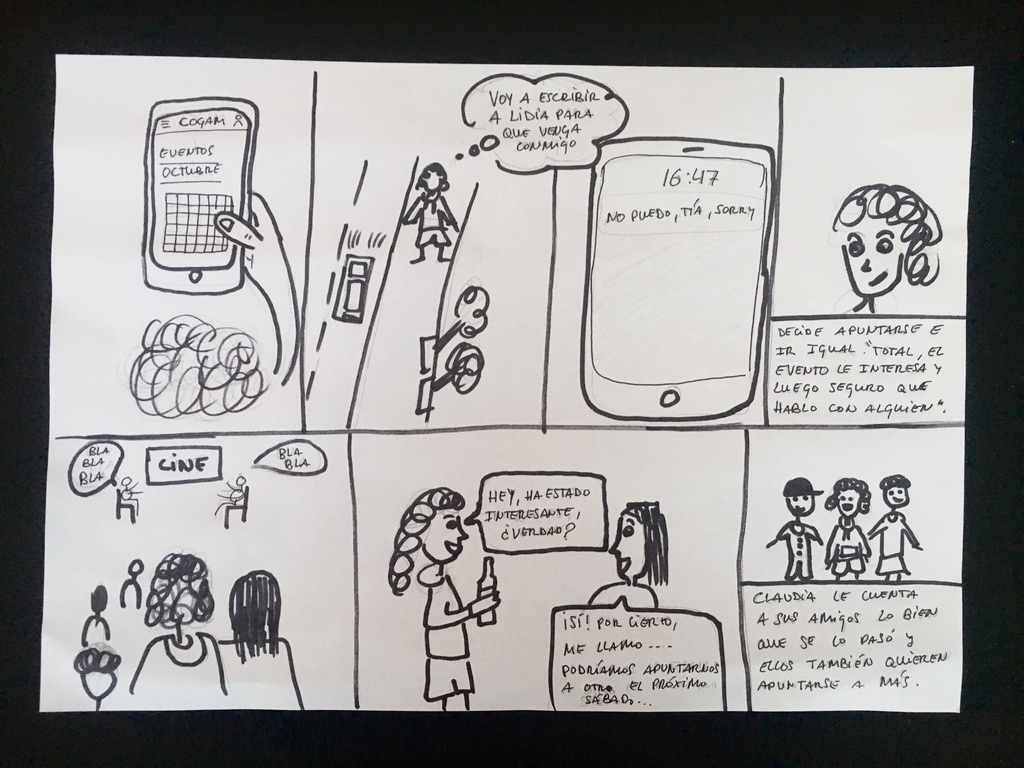 COGAM
EVENTOS
OCTUBRE
VOY A ESCRIBIR
A LIDIA PARA
QUE VENGA
CONMIGO
16:47
NO PUEDO, TÍA, SORRY
DECIDE APUNTARSE E
IR IGUAL. "TOTAL, EL
EVENTO LE INTERESA Y
LUEGO SEGURO QUE
HABLO CON ALGUIEN".
BLA
BLA
BLA
CINE
BLA
BLA
HEY, HA ESTADO
INTERESANTE,
¿VERDAD?
¡SÍ! POR CIERTO,
ME LLAMO....
PODRÍAMOS APUNTARNOS
A OTRO EL PRÓXIMO
SÁBADO...
CLAUDIA LE CUENTA
A SUS AMIGOS LO BIEN
QUE SE LO PASÓ Y
ELLOS TAMBIÉN QUIEREN
APUNTARSE A MÁS.